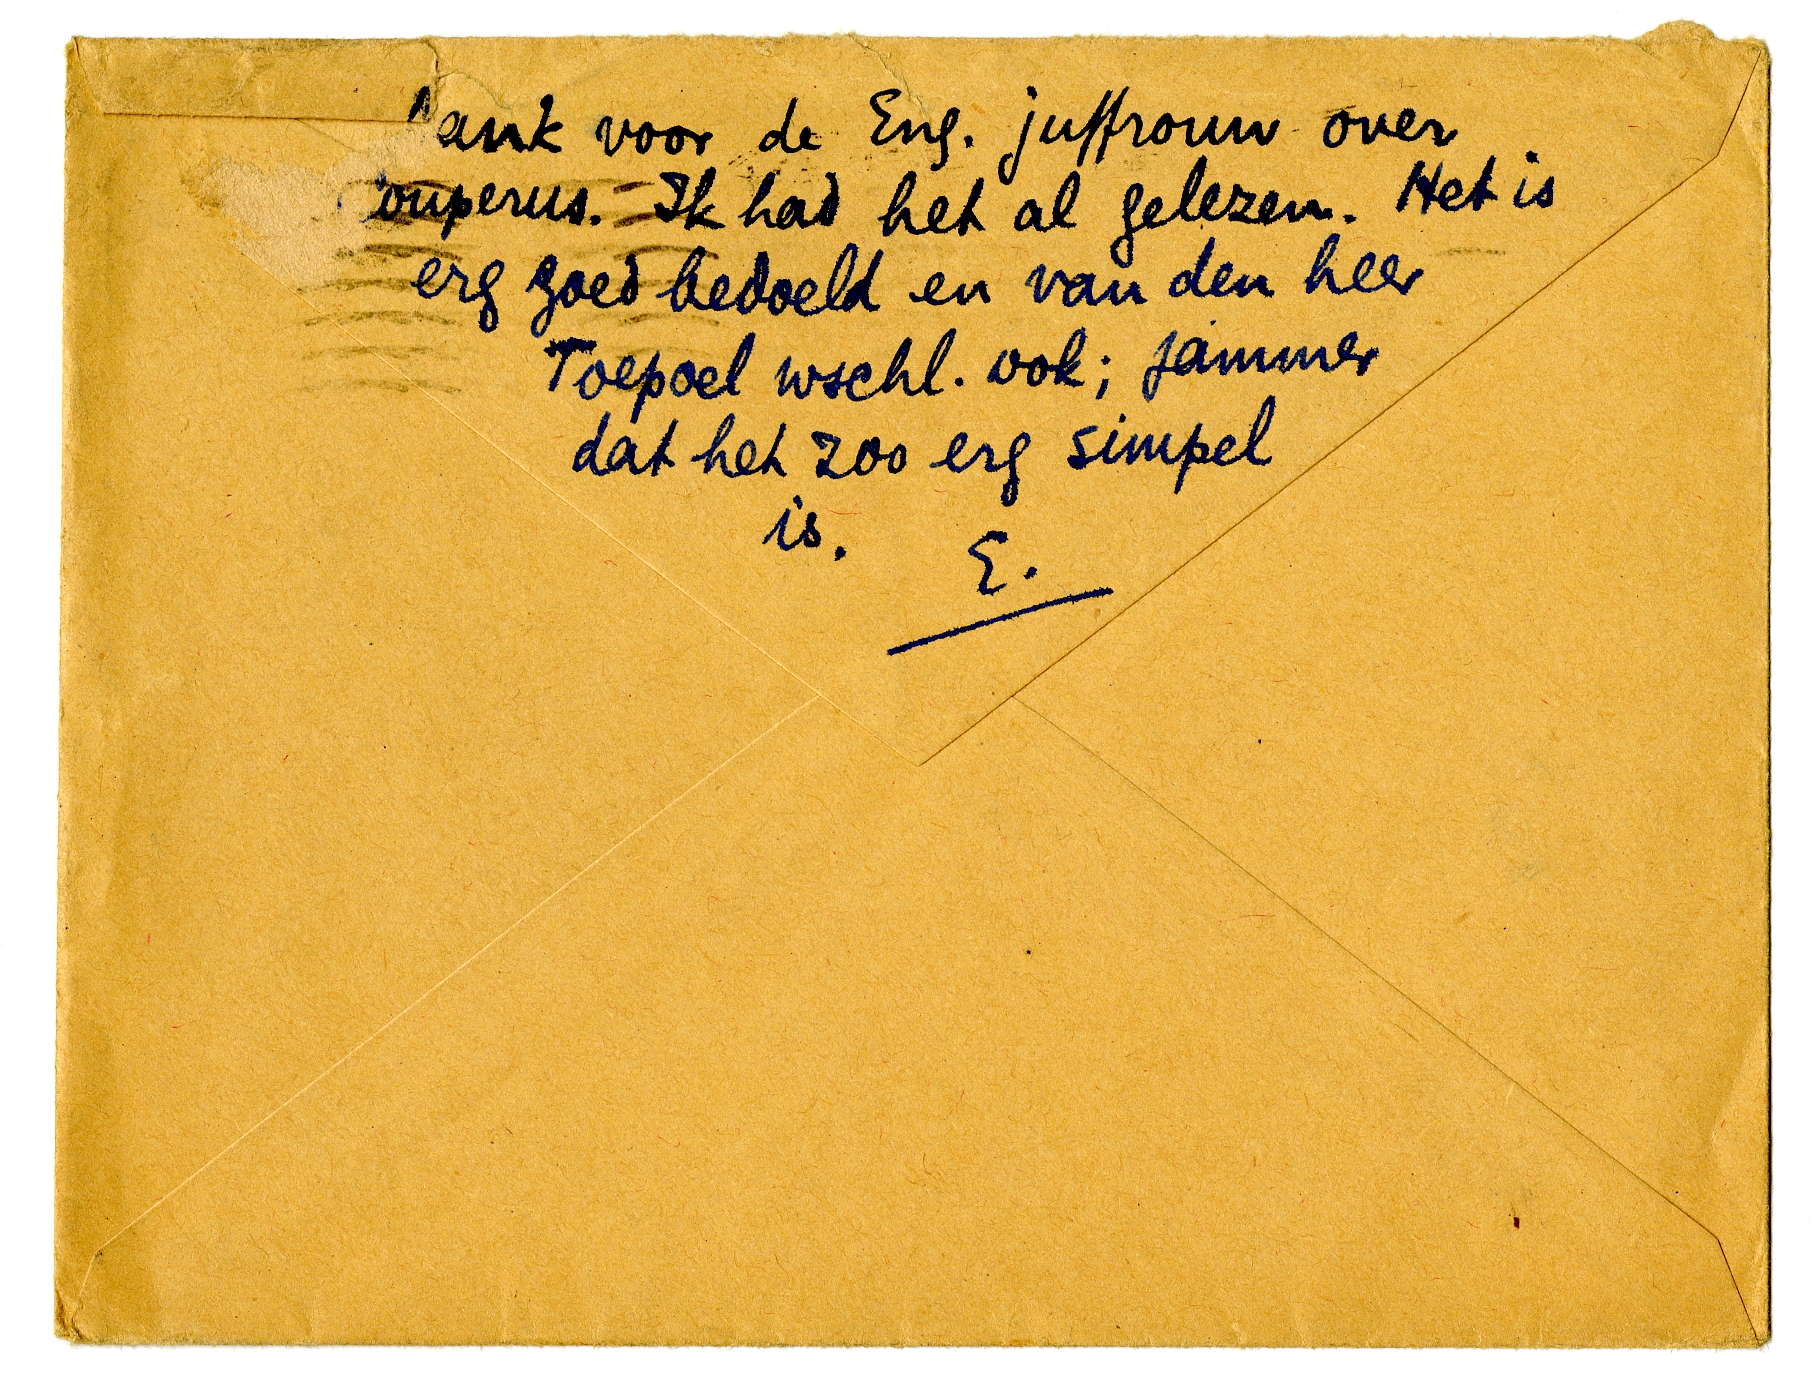 Dank voor de Eng. juffrouw over
Couperus. Ik had het al gelezen. Het is
erg goed bedoeld en van den heer
Toepoel wschl. ook; jammer
dat het zoo erg simpel
is. E.